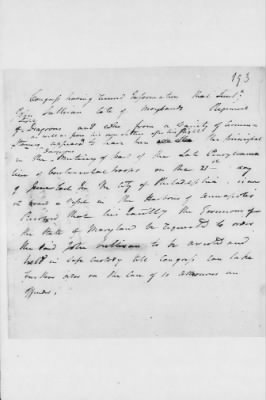 193
Congress having received Information that Lieut.
Sullivan late of Maylands Regiment
of Dragoons and who from a Variety of Circum
stances, as well as from his own letter after his flight
appeared to have been the principal
in the Mutiny of part of the late Pensylvania
line of Continental troops on the 21st day
of June last in the City of Philadelphia, is now
on board a Vessel in the Harbour of Annapolis
Resolved that his Excellency the Governor of
the State of Maryland be requested to order
the said John Sullivan to be arrested and
held in safe custody till Congress can take
further order on the Case of so atrocious an
offender.